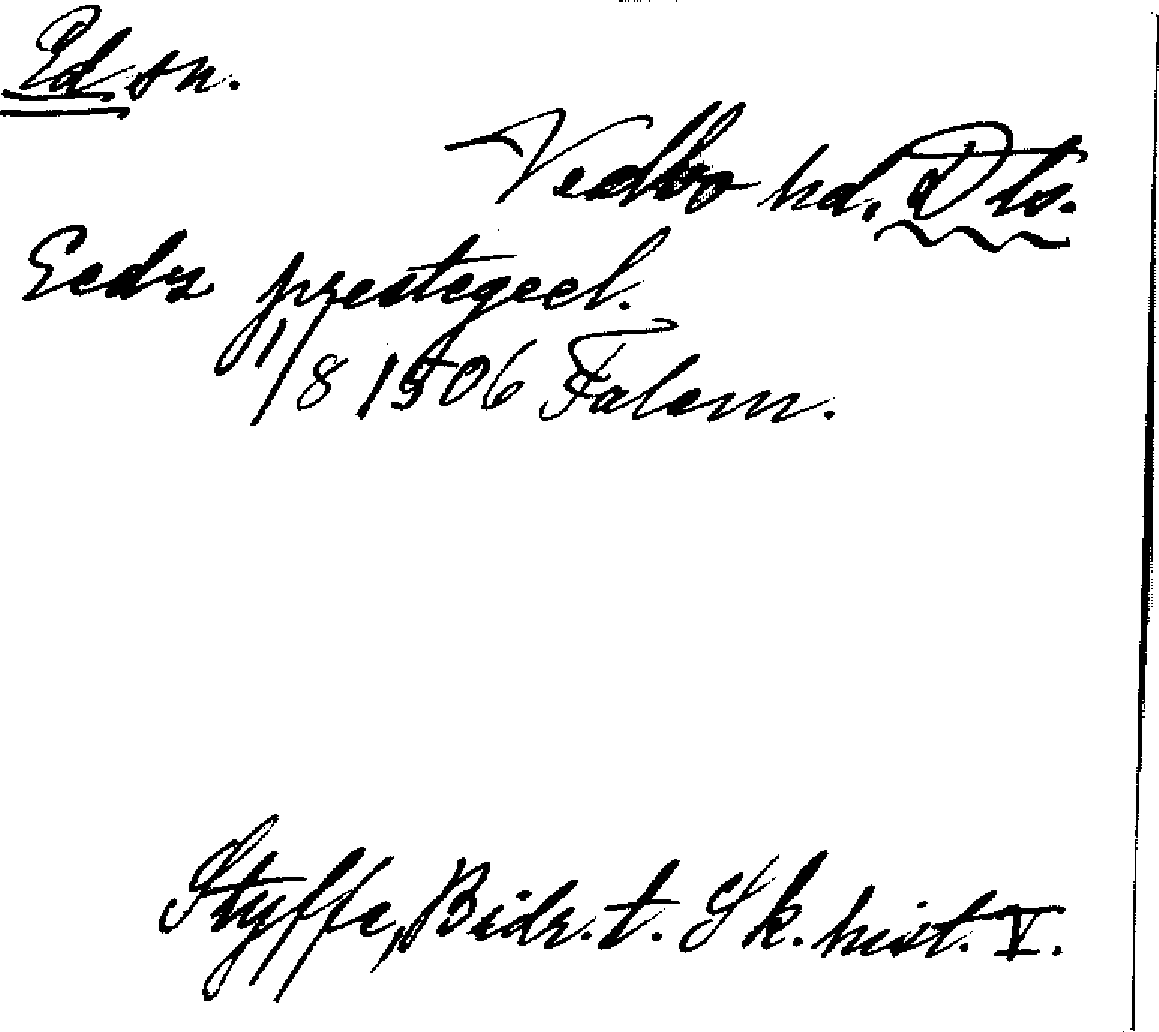 Ed sn.
Vedbo hd, Dls.
Eedz prestegeel.
1/8 1506 Falem.
Styffe, Bidr. t. Sk. hist. V.